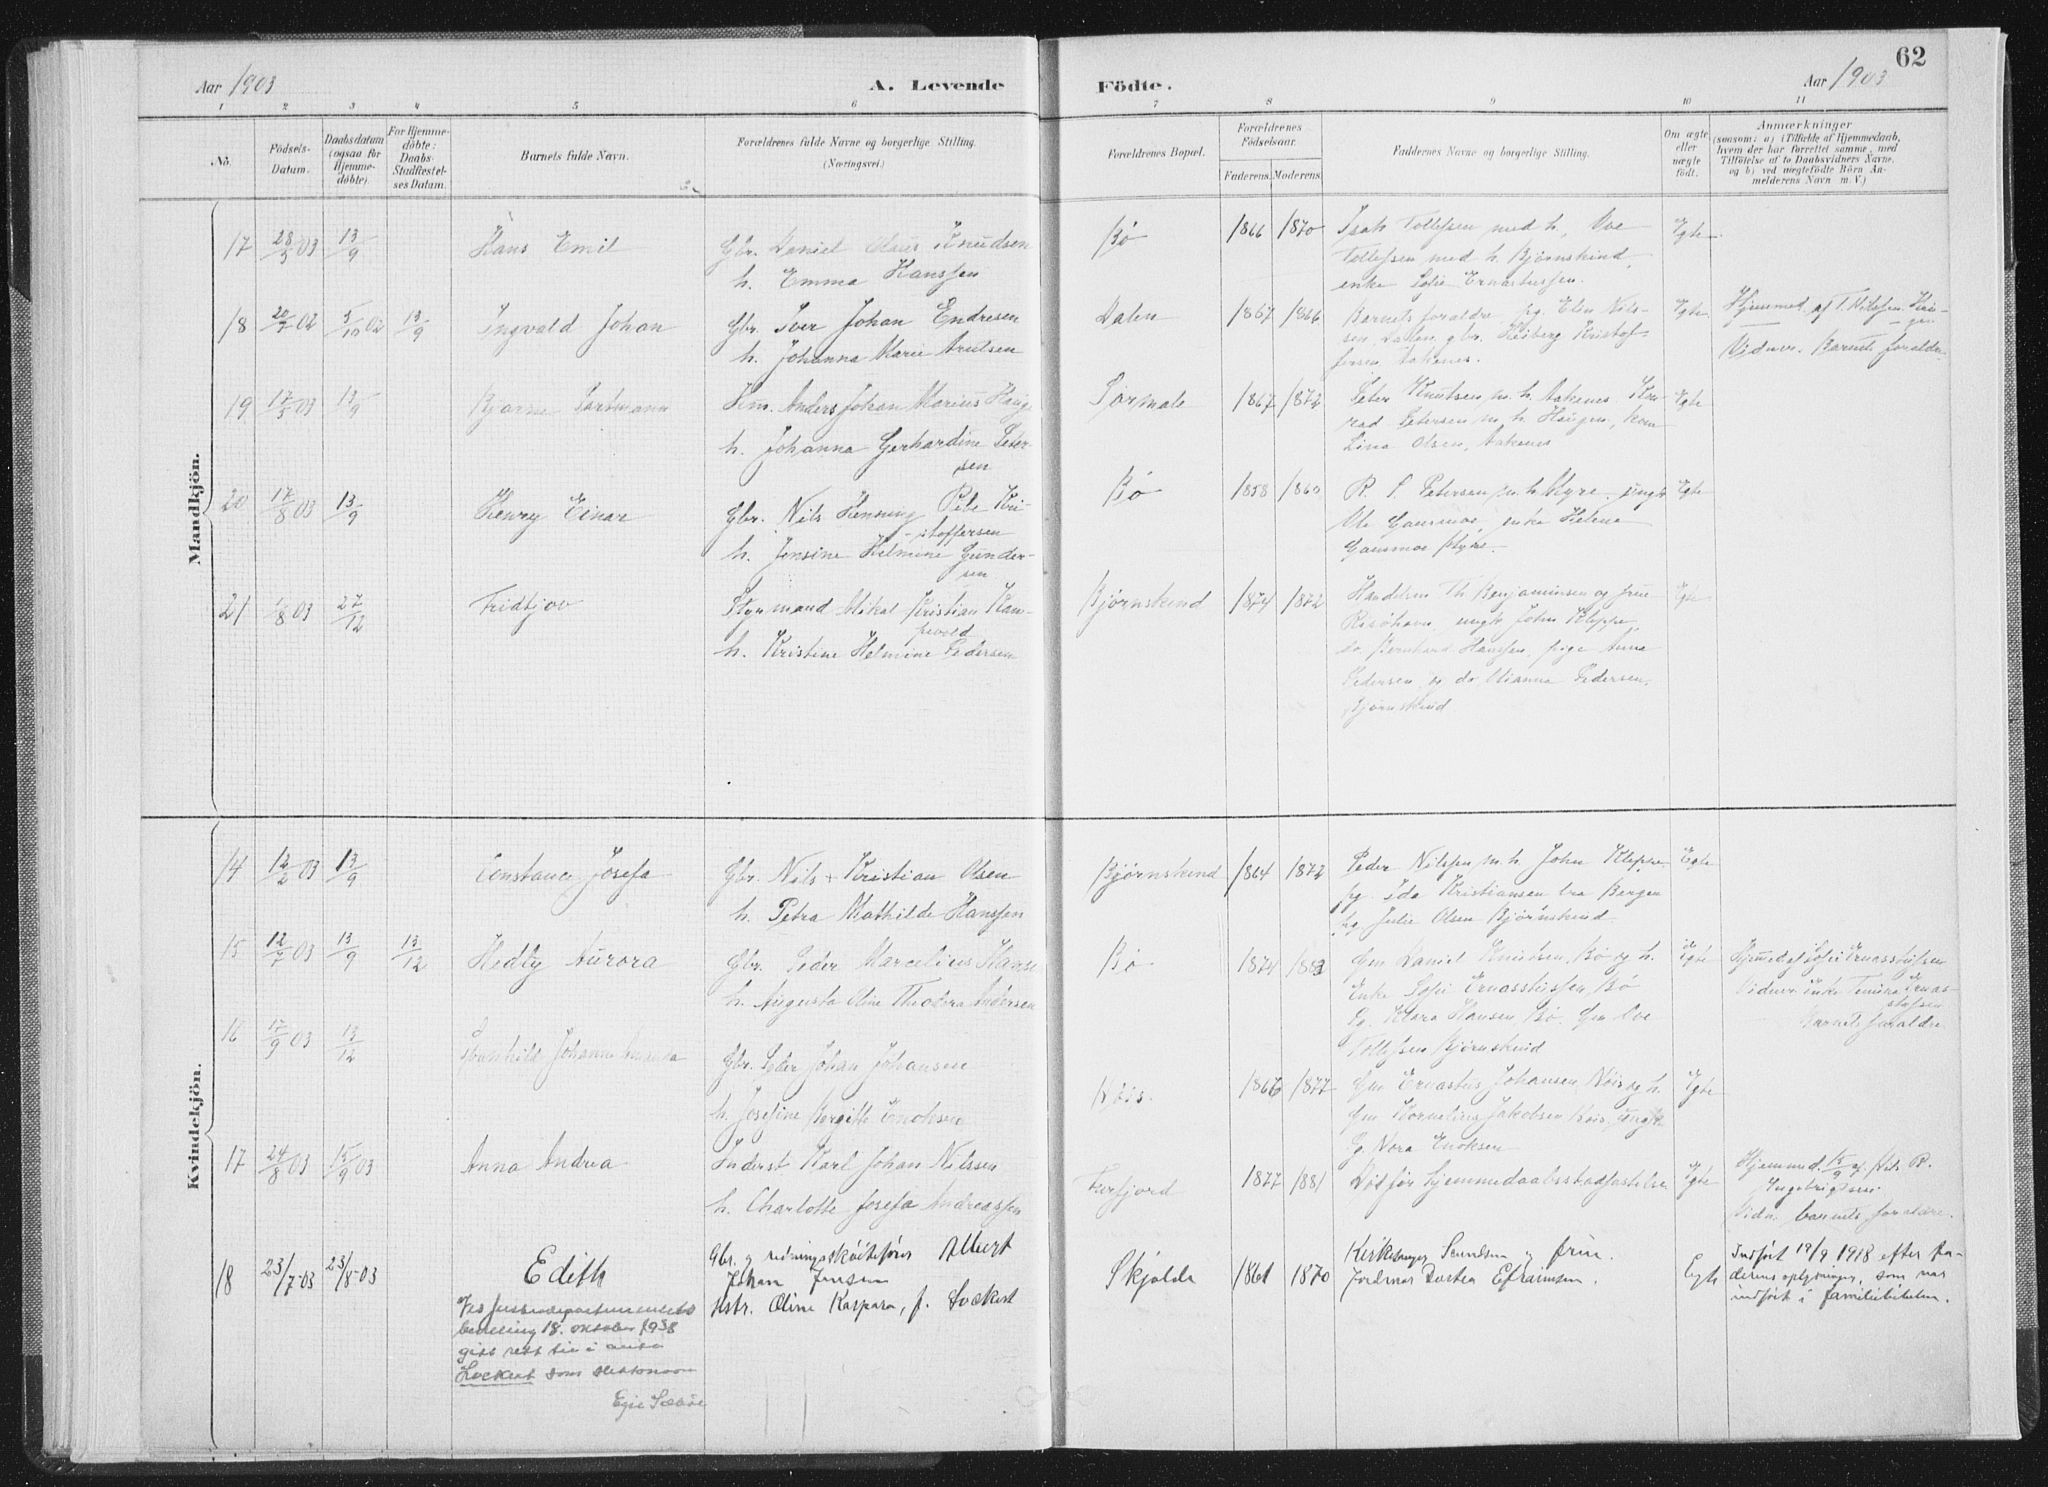 Aar 1903
A. Levende
Födte.
Aar 1903
62
1 2 3 4 5 6 7 8 9 10 11
No.
Födsels-Datum.
Daabsdatum (ogsaa for Hjemme-döbte).
For Hjemme-döbte: Daabs-Stadfæstel-ses Datum.
Barnets fulde Navn.
Forældrenes fulde Navne og borgerlige Stilling.
(Næringsvei.)
Forældrenes Bopæl.
Forældrenes Födselsaar.
Faderens. Moderens.
Faddernes Navne og borgerlige Stilling.
Om ægte eller uægte födt.
Anmærkninger
(saasom: a) i Tilfælde af Hjemmedaab,
hvem der har forrettet samme, med
Tilföielse af to Daabsvidners Navne.
og b) ved uægtefödte Börn An-
melderens Navn m. V.)
Mandkjön.
17 28/5 03 13/9 Hans Emil Gbr. Daniel Olaus Knudsen
h. Emma Hanssen
Bø 1866 1870 Isak Tollefsen med h, Ove
Tollefsen med h. Bjørnskind,
enke Sofie Ernastussen.
Egte.
18 20/7 02 5/10 02 13/9 Ingvald Johan Gbr. Iver Johan Endresen
h. Johanna Marie Arntsen
Dalen 1867 1866 Barnets forældre, pg. Elen Nils-
sen Dalen, gbr. Heiberg Kristof-
fersen Aaknes.
Egte. Hjemmed. af T. Nilssen
Vidner. Barnets forældre
19 17/5 03 13/9 Bjarne Hartmann Hm. Anders Johan Marius Hauge
h. Johanna Gerhardine Peter-
sen
Sørmele 1867 1872 Peter Knutsen m. h. Aaknes
Petersen m h Haugen,
Lina Olsen, Aaknes
Egte
20 17/8 03 13/9 Henry Einar Gbr. Nils Henning Kri-
stoffersen
h. Jensine Helmine Gunder-
sen
Bø 1858 1860 R. S. Petersen m. h. Myre, ungk
Ole Gausmoe, enke Helene
Gausmoe Myre.
Egte
21 1/8 03 27/12 Fridtjov Styrmand Mikal Kristian Kam-
pevold
h. Kristine Helmine Pedersen
Bjørnskind 1874 1872 Handelsm Th Benjaminsen og frue
Risøhavn, ungk John Kleppe,
do Bernhard Hanssen, pige Anna
Pedersen og do Pedersen,
Bjørnskind
Egte
Kvindekjön.
14 12/2 03 13/9 Constance Josefa Gbr. Nils Kristian Olsen
h. Petra Mathilde Hanssen
Bjørnskind 1864 1872 Peder Nilssen m. h. John Kleppe
pg. Ida Kristiansen Bergen
pg Julie Olsen Bjørnskind.
Egte
15 12/7 03 13/9 13/12 Hedly Aurora Gbr. Peder Marcelius Hansen
h. Augusta Oline Theodora Andersen
Bø 1874 1883 Gm Daniel Knudsen, Bø og h.
Enke Sofie Ernasstussen, Bø
Pg. Klara Hansen, Bø. Gm Ove
Tollefsen Bjørnskind
Egte Hjemmed. af Sofie Ernasstussen
Vidner Enke Ernas-
stussen
Barnets forældre
16 17/9 03 13/12 Johanne Gbr. Peder Johan Johansen
h. Josefine Bergitte Enoksen
Nøis. 1866 1877 Gm Ernastus Johansen Nøis og h.
Gm Kornelius Jakobsen Nøis, ungk
Pg Nora Enoksen
Egte
17 24/8 03 15/9 03 Anna Andrea Inderst Karl Johan Nilssen
h. Charlotte Josefa Andreassen
Forfjord 1877 1881 Død før hjemmedaabsstadfæstelse Egte Hjemmed. 15/9 af Nils R.
Ingebrigtsen
Vidn. barnets forældre.
18 23/7-03 23/8-03 Edith Gbr. og redningsskøitefører Albert
Johan Jensen
Hstr. Oline Kaspara, f. Lockert
Skjolde 1861 1870 Kirkesanger Svendsen og frue.
Jordmor Dortea Efraimsen.
Egte Indført 19/9 1918 efter fa-
derens oplysninger, som var
indført i familiebibelen.
Ved Justisdepartementets
bevilling 18. oktober 1938
gitt rett til å anta
Lockert som slektsnavn